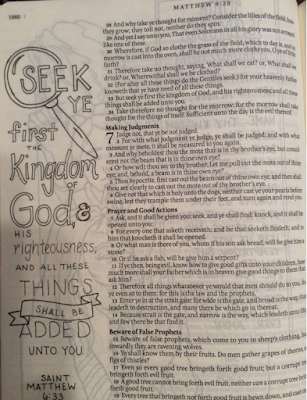 1080
MATTHEW 6:28
SEEK
YE
first
THE
Kingdom
OF
God,
&
HIS
righteousness,
AND ALL THESE
THINGS
SHALL BE
ADDED
UNTO YOU.
SAINT
MATTHEW
6:33
28 And why take ye thought for raiment? Consider the lilies of the field, how
they grow; they toil not, neither do they spin:
29 And yet I say unto you, That even Solomon in all his glory was not arrayed
like one of these.
30 Wherefore, if God so clothe the grass of the field, which to day is, and to
morrow is cast into the oven, shall he not much more clothe you, O ye of little
faith?
31 Therefore take no thought, saying, What shall we eat? or, What shall we
drink? or, Wherewithal shall we be clothed?
32 (For after all these things do the Gentiles seek:) for your heavenly Father
knoweth that ye have need of all these things.
33 But seek ye first the kingdom of God, and his righteousness; and all these
things shall be added unto you.
34 Take therefore no thought for the morrow: for the morrow shall take
thought for the things of itself. Sufficient unto the day is the evil thereof.
Making Judgments
7 Judge not, that ye be not judged.
2 For with what judgment ye judge, ye shall be judged: and with what
measure ye mete, it shall be measured to you again.
3 And why beholdest thou the mote that is in thy brother's eye, but consi
derest not the beam that is in thine own eye?
4 Or how wilt thou say to thy brother, Let me pull out the mote out of thine
eye; and, behold, a beam is in thine own eye?
5 Thou hypocrite, first cast out the beam out of thine own eye; and then shalt
thou see clearly to cast out the mote out of thy brother's eye.
6 Give not that which is holy unto the dogs, neither cast ye your pearls before
swine, lest they trample them under their feet, and turn again and rend you.
Prayer and Good Actions
7 Ask, and it shall be given you; seek, and ye shall find; knock, and it shall be
opened unto you:
8 For every one that asketh receiveth; and he that seeketh findeth; and to
him that knocketh it shall be opened.
9 Or what man is there of you, whom if his son ask bread, will he give him a
stone?
10 Or if he ask a fish, will he give him a serpent?
11 If ye then, being evil, know how to give good gifts unto your children, how
much more shall your Father which is in heaven give good things to them that
ask him?
12 Therefore all things whatsoever ye would that men should do to you, do
ye even so to them: for this is the law and the prophets.
13 Enter ye in at the strait gate: for wide is the gate, and broad is the way, that
leadeth to destruction, and many there be which go in thereat:
14 Because strait is the gate, and narrow is the way, which leadeth unto life,
and few there be that find it.
Beware of False Prophets
15 Beware of false prophets, which come to you in sheep's clothing, but
inwardly they are ravening wolves.
16 Ye shall know them by their fruits. Do men gather grapes of thorns, or
figs of thistles?
17 Even so every good tree bringeth forth good fruit; but a corrupt tree
bringeth forth evil fruit.
18 A good tree cannot bring forth evil fruit, neither can a corrupt tree bring
forth good fruit.
19 Every tree that bringeth not forth good fruit is hewn down, and cast